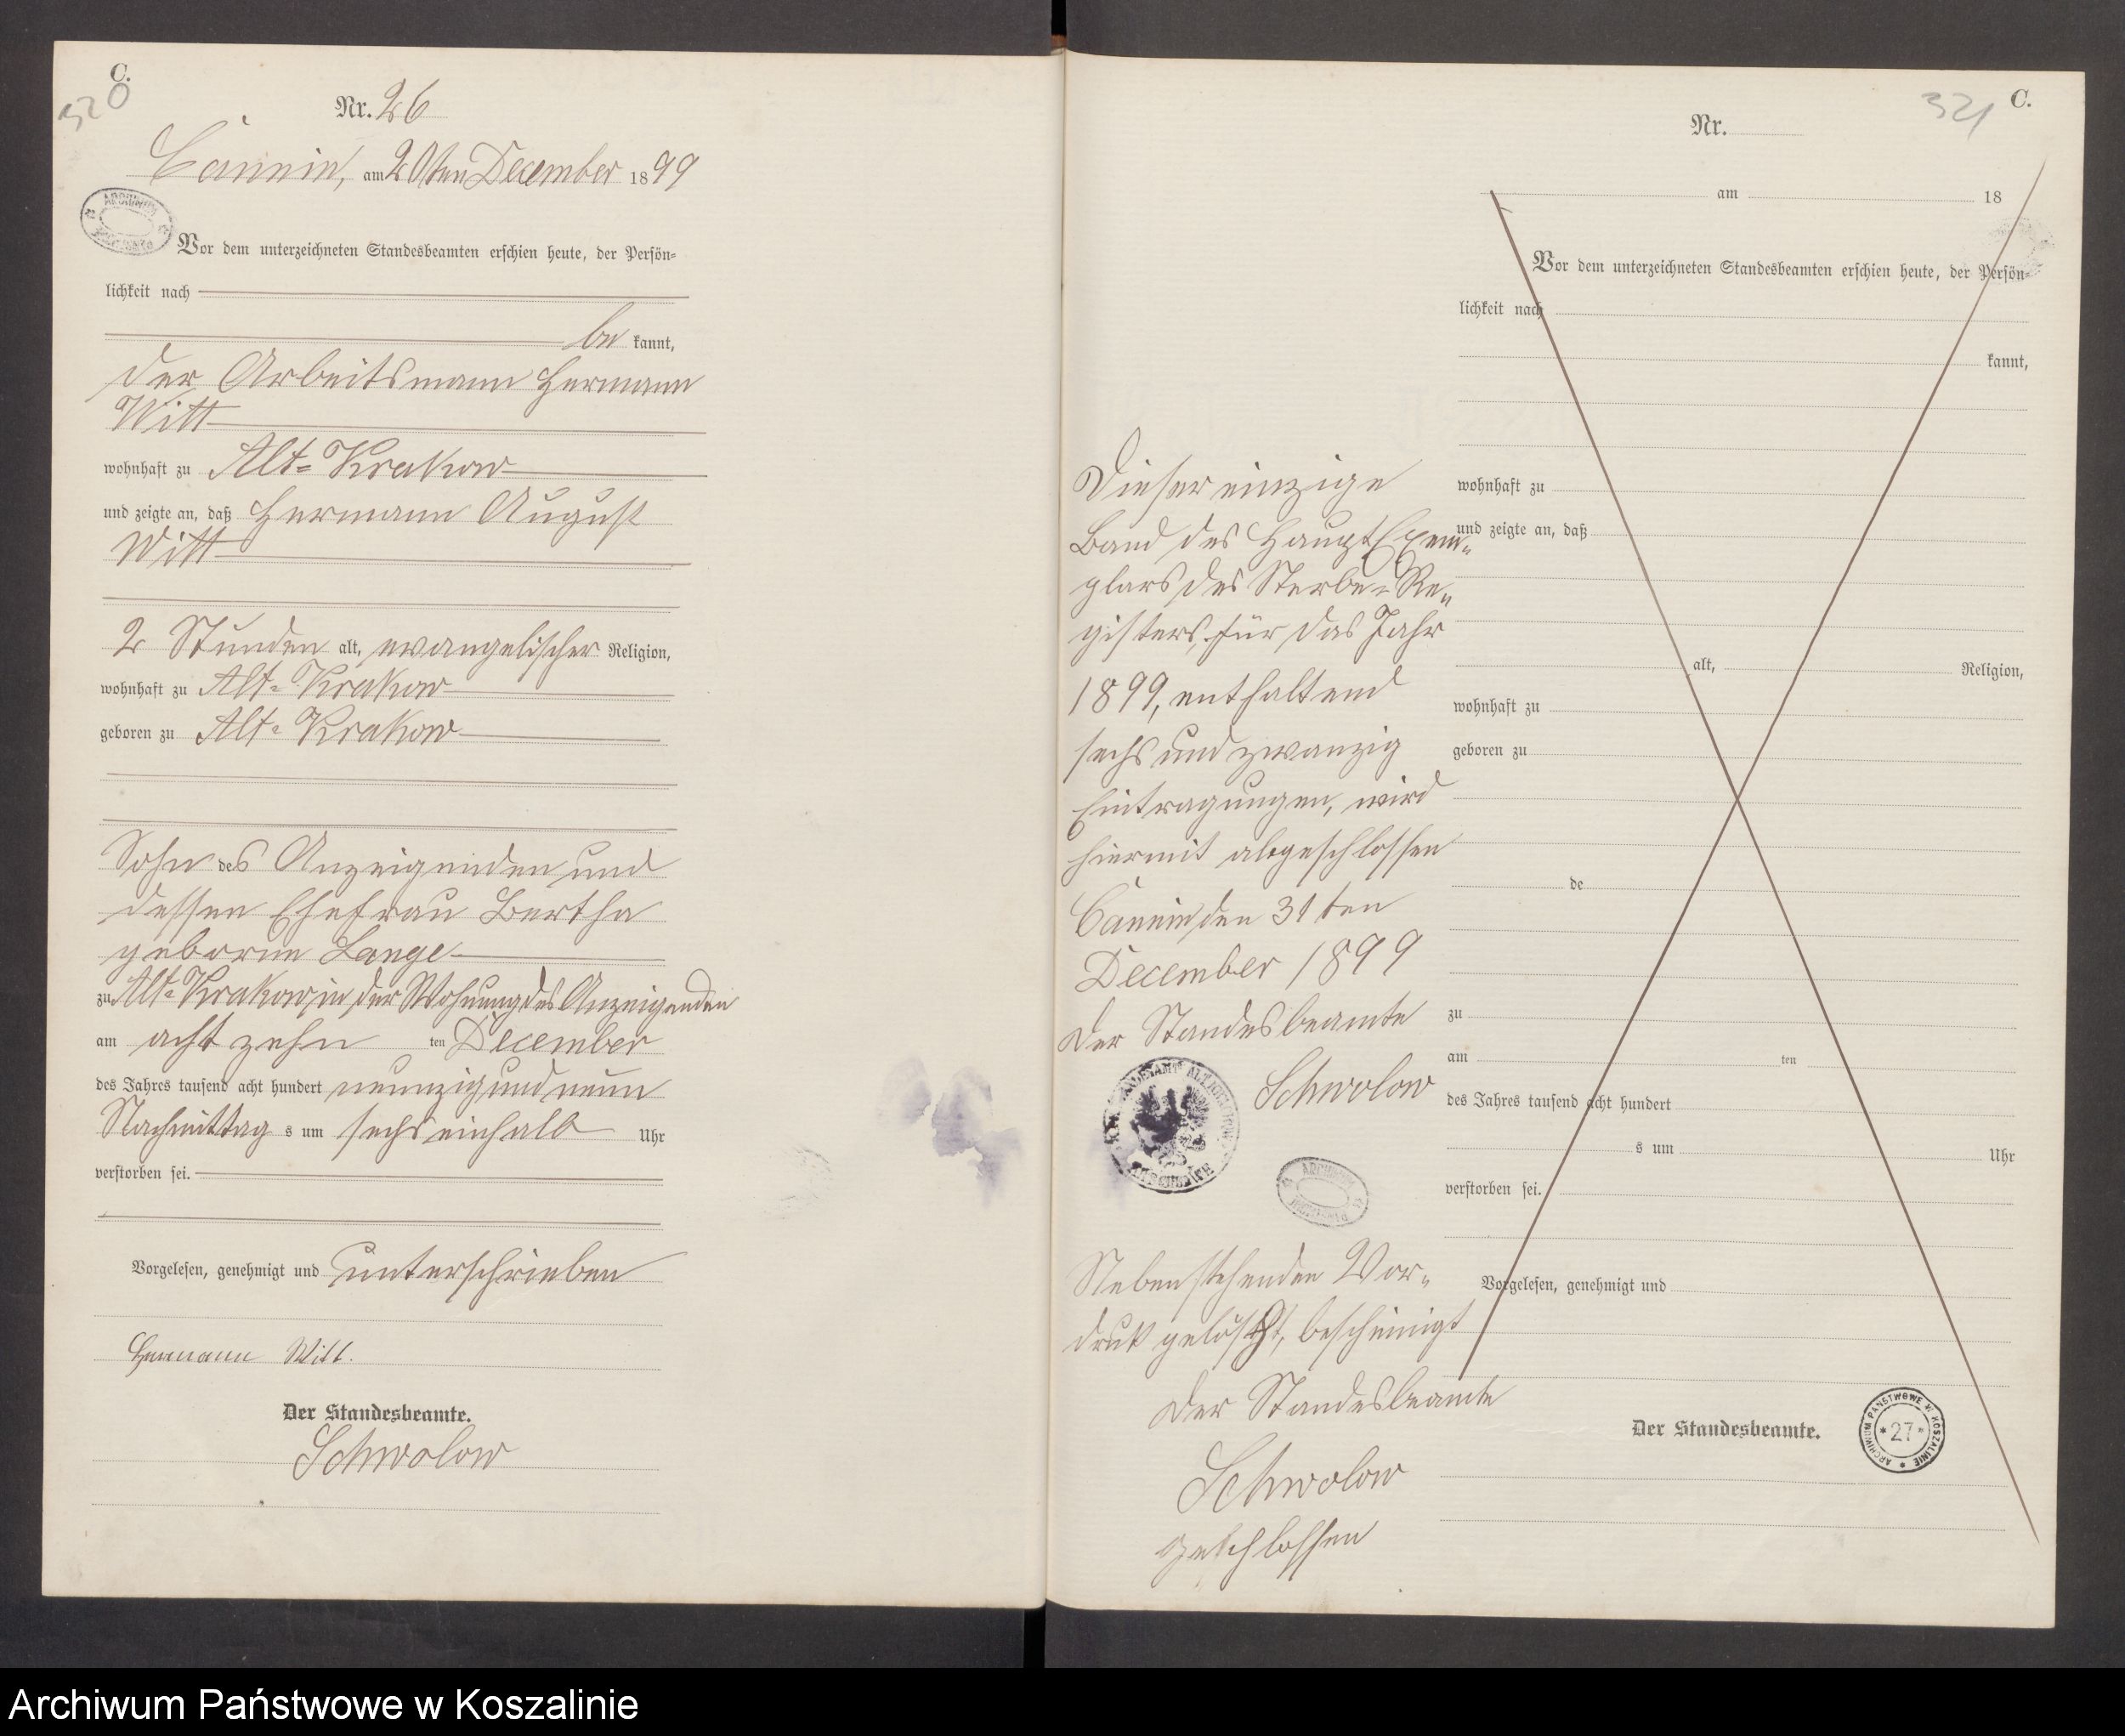 C.
320
Nr. 26
Cannin, am 20ten December 1899
Vor dem unterzeichneten Standesbeamten erschien heute, der Persön=
lichkeit nach
be kannt,
der Arbeitsmann Hermann
Witt
wohnhaft zu Alt=Krakow
und zeigte an, daß Hermann August
Witt
2 Stunden alt, evangelischer Religion,
wohnhaft zu Alt=Krakow
geboren zu Alt=Krakow
Sohn des Anzeigenden und
dessen Ehefrau Bertha
geborene Lange
zu Alt=Krakow, in der Wohnung des Anzeigenden
am achtzehn ten December
des Jahres tausend acht hundert neunzig und neun
Nachmittag s um sechs einhalb Uhr
verstorben sei.
Vorgelesen, genehmigt und unterschrieben
Hermann Witt.
Der Standesbeamte.
Schwolow
321
C.
Nr.
am 18
Vor dem unterzeichneten Standesbeamten erschien heute, der Persön=
lichkeit nach
kannt,
wohnhaft zu
und zeigte an, daß
alt, Religion,
wohnhaft zu
geboren zu
de
zu
am ten
des Jahres tausend acht hundert
s um Uhr
verstorben sei.
Vorgelesen, genehmigt und
Der Standesbeamte.
Dieser einzige
Band des HauptExem=
plars des Sterbe=Re=
gisters, für das Jahr
1899, enthaltend
sechs und zwanzig
Eintragungen, wird
hiermit abgeschlossen
Cannin den 31ten
December 1899
Der Standesbeamte
Schwolow
Nebenstehenden Vor=
druk gelöscht, bescheinigt
Der Standesbeamte
Schwolow
geschlossen
ARCHIWUM PAŃSTWOWE W KOSZALINIE
*27*
Archiwum Państwowe w Koszalinie